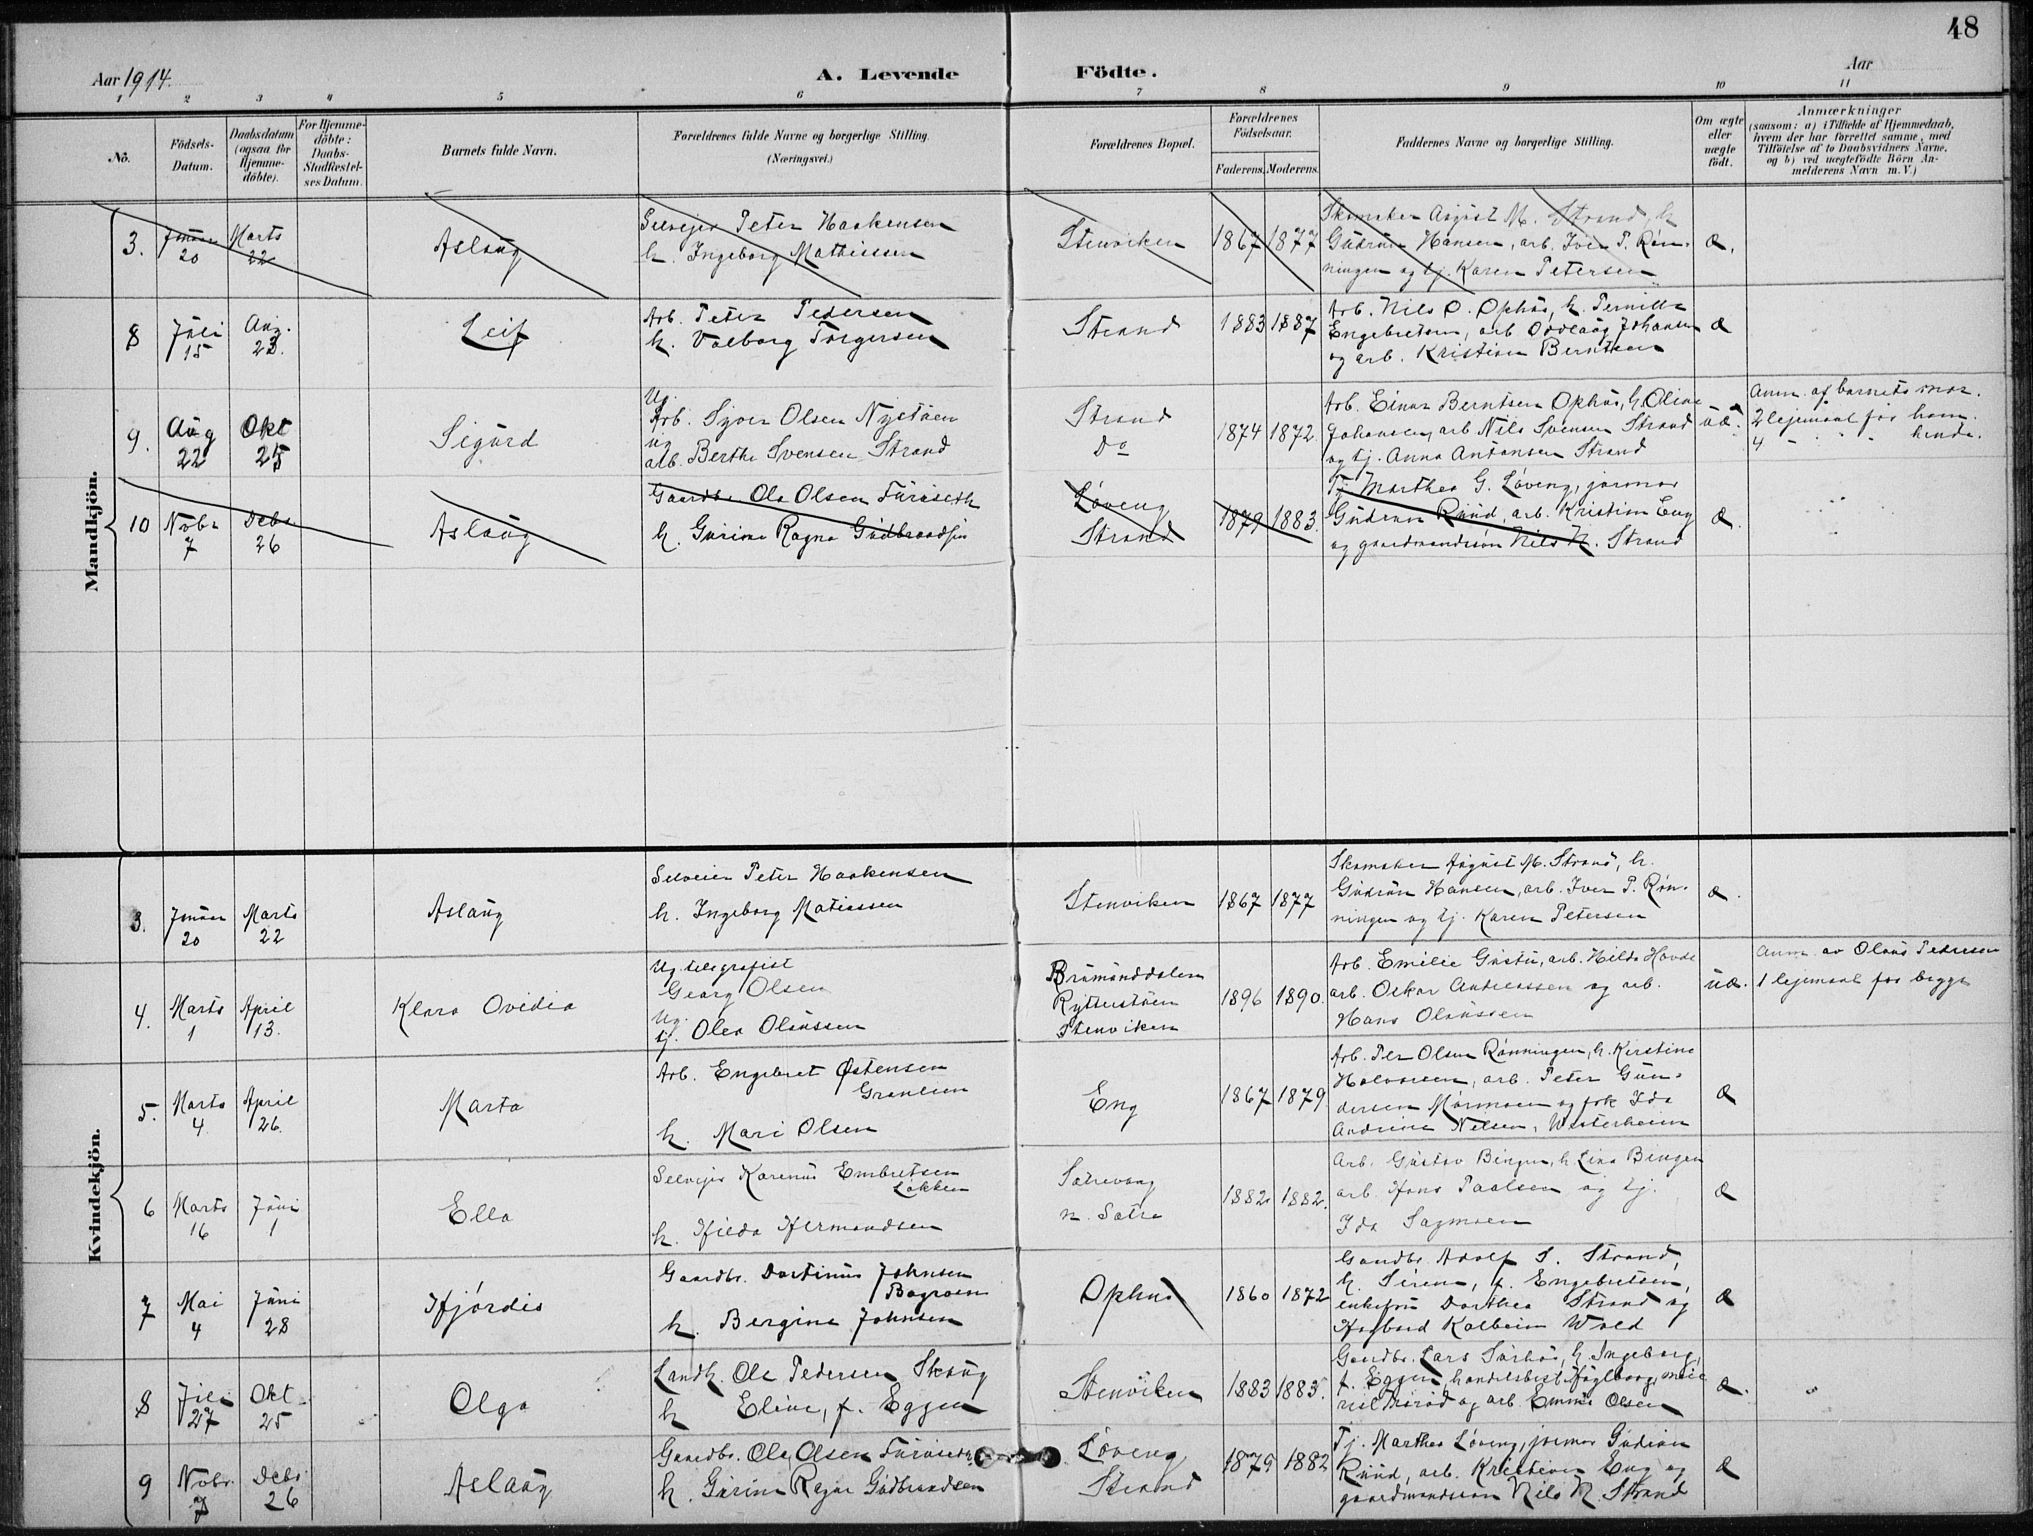 48
Aar 1914.
A. Levende
Födte.
Aar
1 2 3 4 5 6 7 8 9 10 11
No.
Födsels-
Datum.
Daabsdatum
(ogsaa for
Hjemme-
döbte).
For Hjemme-
döbte:
Daabs-
Stadfæstel-
ses Datum.
Barnets fulde Navn.
Forældrenes fulde Navne og borgerlige Stilling.
(Næringsvei.)
Forældrenes Bopæl.
Forældrenes
Födselsaar.
Faderens. Moderens.
Faddernes Navne og borgerlige Stilling.
Om ægte
eller
uægte
födt.
Anmærkninger
(saasom: a) i Tilfælde af Hjemmedaab,
hvem der har forrettet samme, med
Tilföielse af to Daabsvidners Navne,
og b) ved uægtefödte Börn An-
melderens Navn m. V.)
Mandkjön.
3.
Januar
20
Marts
22
Aslaug
Selvejer Peter Haakensen
h. Ingeborg Mathissen
Stenviken
1867 1877
Skomaker August M. Strand, h
Gudrun Hansen, arb. Iver P. Røn-
ningen og tj. Karen Petersen
æ.
8
Juli
15
Aug.
23.
Leif
Arb. Peter Pedersen
h. Valborg Torgersen
Strand
1883 1887
Arb. Nils O. Ophus, h. Pernille
Engebretsen, arb Oddlaug Johansen
og arb. Kristian Berntsen
æ
9.
Aug
22
Okt
25
Sigurd
Ug.
Arb. Syver Olsen Nystuen
ug
arb. Berthe Svensen Strand
Strand
Do
1874 1872.
Arb. Einar Berntsen Ophus, h. Oline
Johansen, arb Nils Svensen Strand
og tj. Anna Antonsen Strand
uæ.
Anm. af barnets mor.
2 lejemaal for ham.
4 - " " hende.
10
Novbr
7
Decbr
26
Aslaug
Gaardbr Ole Olsen Furuseth
h. Gurine Ragna Gudbrandsen
Løveng
Strand
1879 1883.
Tj Marthea G. Løveng, jormor
Gudrun Ruud, arb. Kristian Eng
og gaardmandssøn Nils N. Strand
æ.
Kvindekjön.
3.
Januar
20
Marts
22
Aslaug
Selveier Peter Haakensen
h. Ingeborg Matiassen
Stenviken
1867 1877
Skomaker August M. Strand, h.
Gudrun Hansen, arb. Iver P. Røn-
ningen og tj. Karen Petersen
æ.
4.
Marts
1
April
13.
Klara Ovidia
Ug telegrafist
Georg Olsen
Ug.
tj. Olea Olaussen
Rytterstuen
Stenviken
1896 1890.
Arb. Emilie Gustu, arb. Hilda Hovde
arb. Oskar Andreassen og arb.
Hans Olaussen
uæ.
Anm. av Olaus Pedersen
1 lejemaal for begge
5.
Marts
4.
April
26.
Marta
Arb. Engebret Østensen
Granlien
h. Mari Olsen
Eng
1867 1879
Arb. Per Olsen Rønningen, h. Kirstine
Halvorsen, arb. Peter Gun-
dersen Mormoen og frk Ida
Andrine Nelsen, Westerheim
æ
6
Marts
16
Juni
1
Ella
Selvejer Karenus Embretsen
Løkken
h. Hilda Hermandsen
Sætrevang
n. Sætre
1882 1882.
Arb. Gustav Bingen, h Lina Bingen
arb. Hans Paalsen og tj.
Ida Sagmoen
æ
7
Mai
4
Juni
28
Hjørdis
Gaardbr. Dortinus Johnsen
Bagroen
h. Bergine Johnsen
Ophus
1860 1872
Gaardbr. Adolf S. Strand,
h. Sirena, f. Engebretsen,
enkefru Dorthea Strand og
Hagbard Kolbein Wold
æ
8
Juli
27
Okt
25
Olga
Landh. Ole Pedersen Skaug
h Eline, f. Eggen
Stenviken
1883 1883.
f. Eggen, handelsbest
og arb. Emma Olsen
æ.
9
Novbr
7
Decbr
26
Aslaug
Gaardbr. Ole Olsen Furuseth
h. Gurine Ragna Gudbrandsen
Løveng
Strand
1879 1882
Tj. Marthea Løveng, jormor Gudrun
Ruud, arb. Kristian Eng og
gaardmandssøn Nils N. Strand
æ